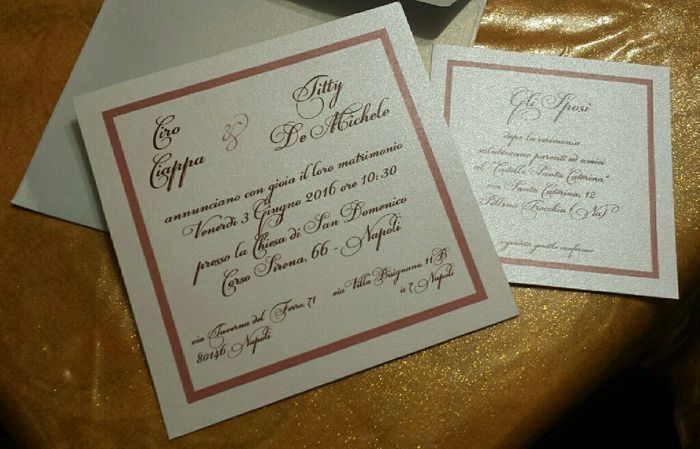 Ciro
Ciappa
&
Titty
De Michele
annunciano con gioia il loro matrimonio
Venerdì 3 Giugno 2016 ore 10:30
presso la Chiesa di San Domenico
Corso Sirena, 66 - Napoli
via Taverna del Ferro, 71
80146 Napoli
via Villa Bisignano, 11B
is 7 Napoli
Gli Sposi
dopo la cerimonia
saluteranno parenti ed amici
al "Castello Santa Caterina"
via Santa Caterina, 12
Pollena Trocchia (Na)
è gradita gentile conferma